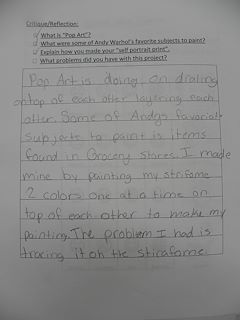 Critique/Reflection:
What is "Pop Art"?
What were some of Andy Warhol's favorite subjects to paint?
Explain how you made your "self portrait print".
What problems did you have with this project?
Pop Art is doing on drating
on top of each other layering each
other. Some of Andys favoriat
subjects to paint is items
found in Grocery stores. I made
mine by painting my strifome
2 colors one at a time on
top of each other to make my
painting. The problem I had is
tracing it oh the stirafome.